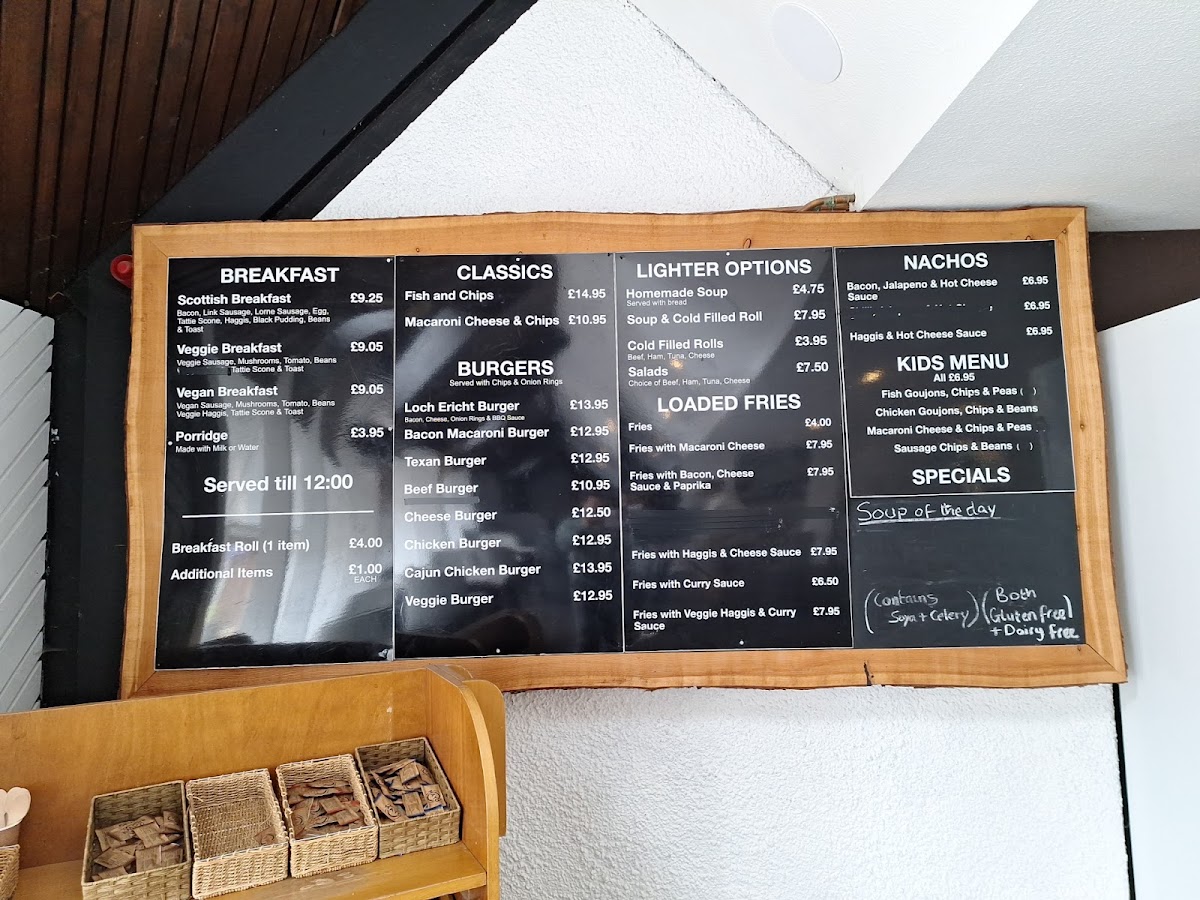 BREAKFAST
Scottish Breakfast £9.25
Bacon, Link Sausage, Lorne Sausage, Egg,
Tattie Scone, Haggis, Black Pudding, Beans
& Toast
Veggie Breakfast £9.05
Veggie Sausage, Mushrooms, Tomato, Beans
Tattie Scone & Toast
Vegan Breakfast £9.05
Vegan Sausage, Mushrooms, Tomato, Beans
Veggie Haggis, Tattie Scone & Toast
Porridge £3.95
Made with Milk or Water
Served till 12:00
Breakfast Roll (1 item) £4.00
Additional Items £1.00
EACH
CLASSICS
Fish and Chips £14.95
Macaroni Cheese & Chips £10.95
BURGERS
Served with Chips & Onion Rings
Loch Ericht Burger £13.95
Bacon, Cheese, Onion Rings & BBQ Sauce
Bacon Macaroni Burger £12.95
Texan Burger £12.95
Beef Burger £10.95
Cheese Burger £12.50
Chicken Burger £12.95
Cajun Chicken Burger £13.95
Veggie Burger £12.95
LIGHTER OPTIONS
Homemade Soup £4.75
Served with bread
Soup & Cold Filled Roll £7.95
Cold Filled Rolls £3.95
Beef, Ham, Tuna, Cheese
Salads £7.50
Choice of Beef, Ham, Tuna, Cheese
LOADED FRIES
Fries £4.00
Fries with Macaroni Cheese £7.95
Fries with Bacon, Cheese £7.95
Sauce & Paprika
Fries with Haggis & Cheese Sauce £7.95
Fries with Curry Sauce £6.50
Fries with Veggie Haggis & Curry £7.95
Sauce
NACHOS
Bacon, Jalapeno & Hot Cheese £6.95
Sauce
£6.95
Haggis & Hot Cheese Sauce £6.95
KIDS MENU
All £6.95
Fish Goujons, Chips & Peas ( )
Chicken Goujons, Chips & Beans
Macaroni Cheese & Chips & Peas
Sausage Chips & Beans ( )
SPECIALS
Soup of the day
(Contains
Soya + Celery)
(Both
Gluten free)
+ Dairy free